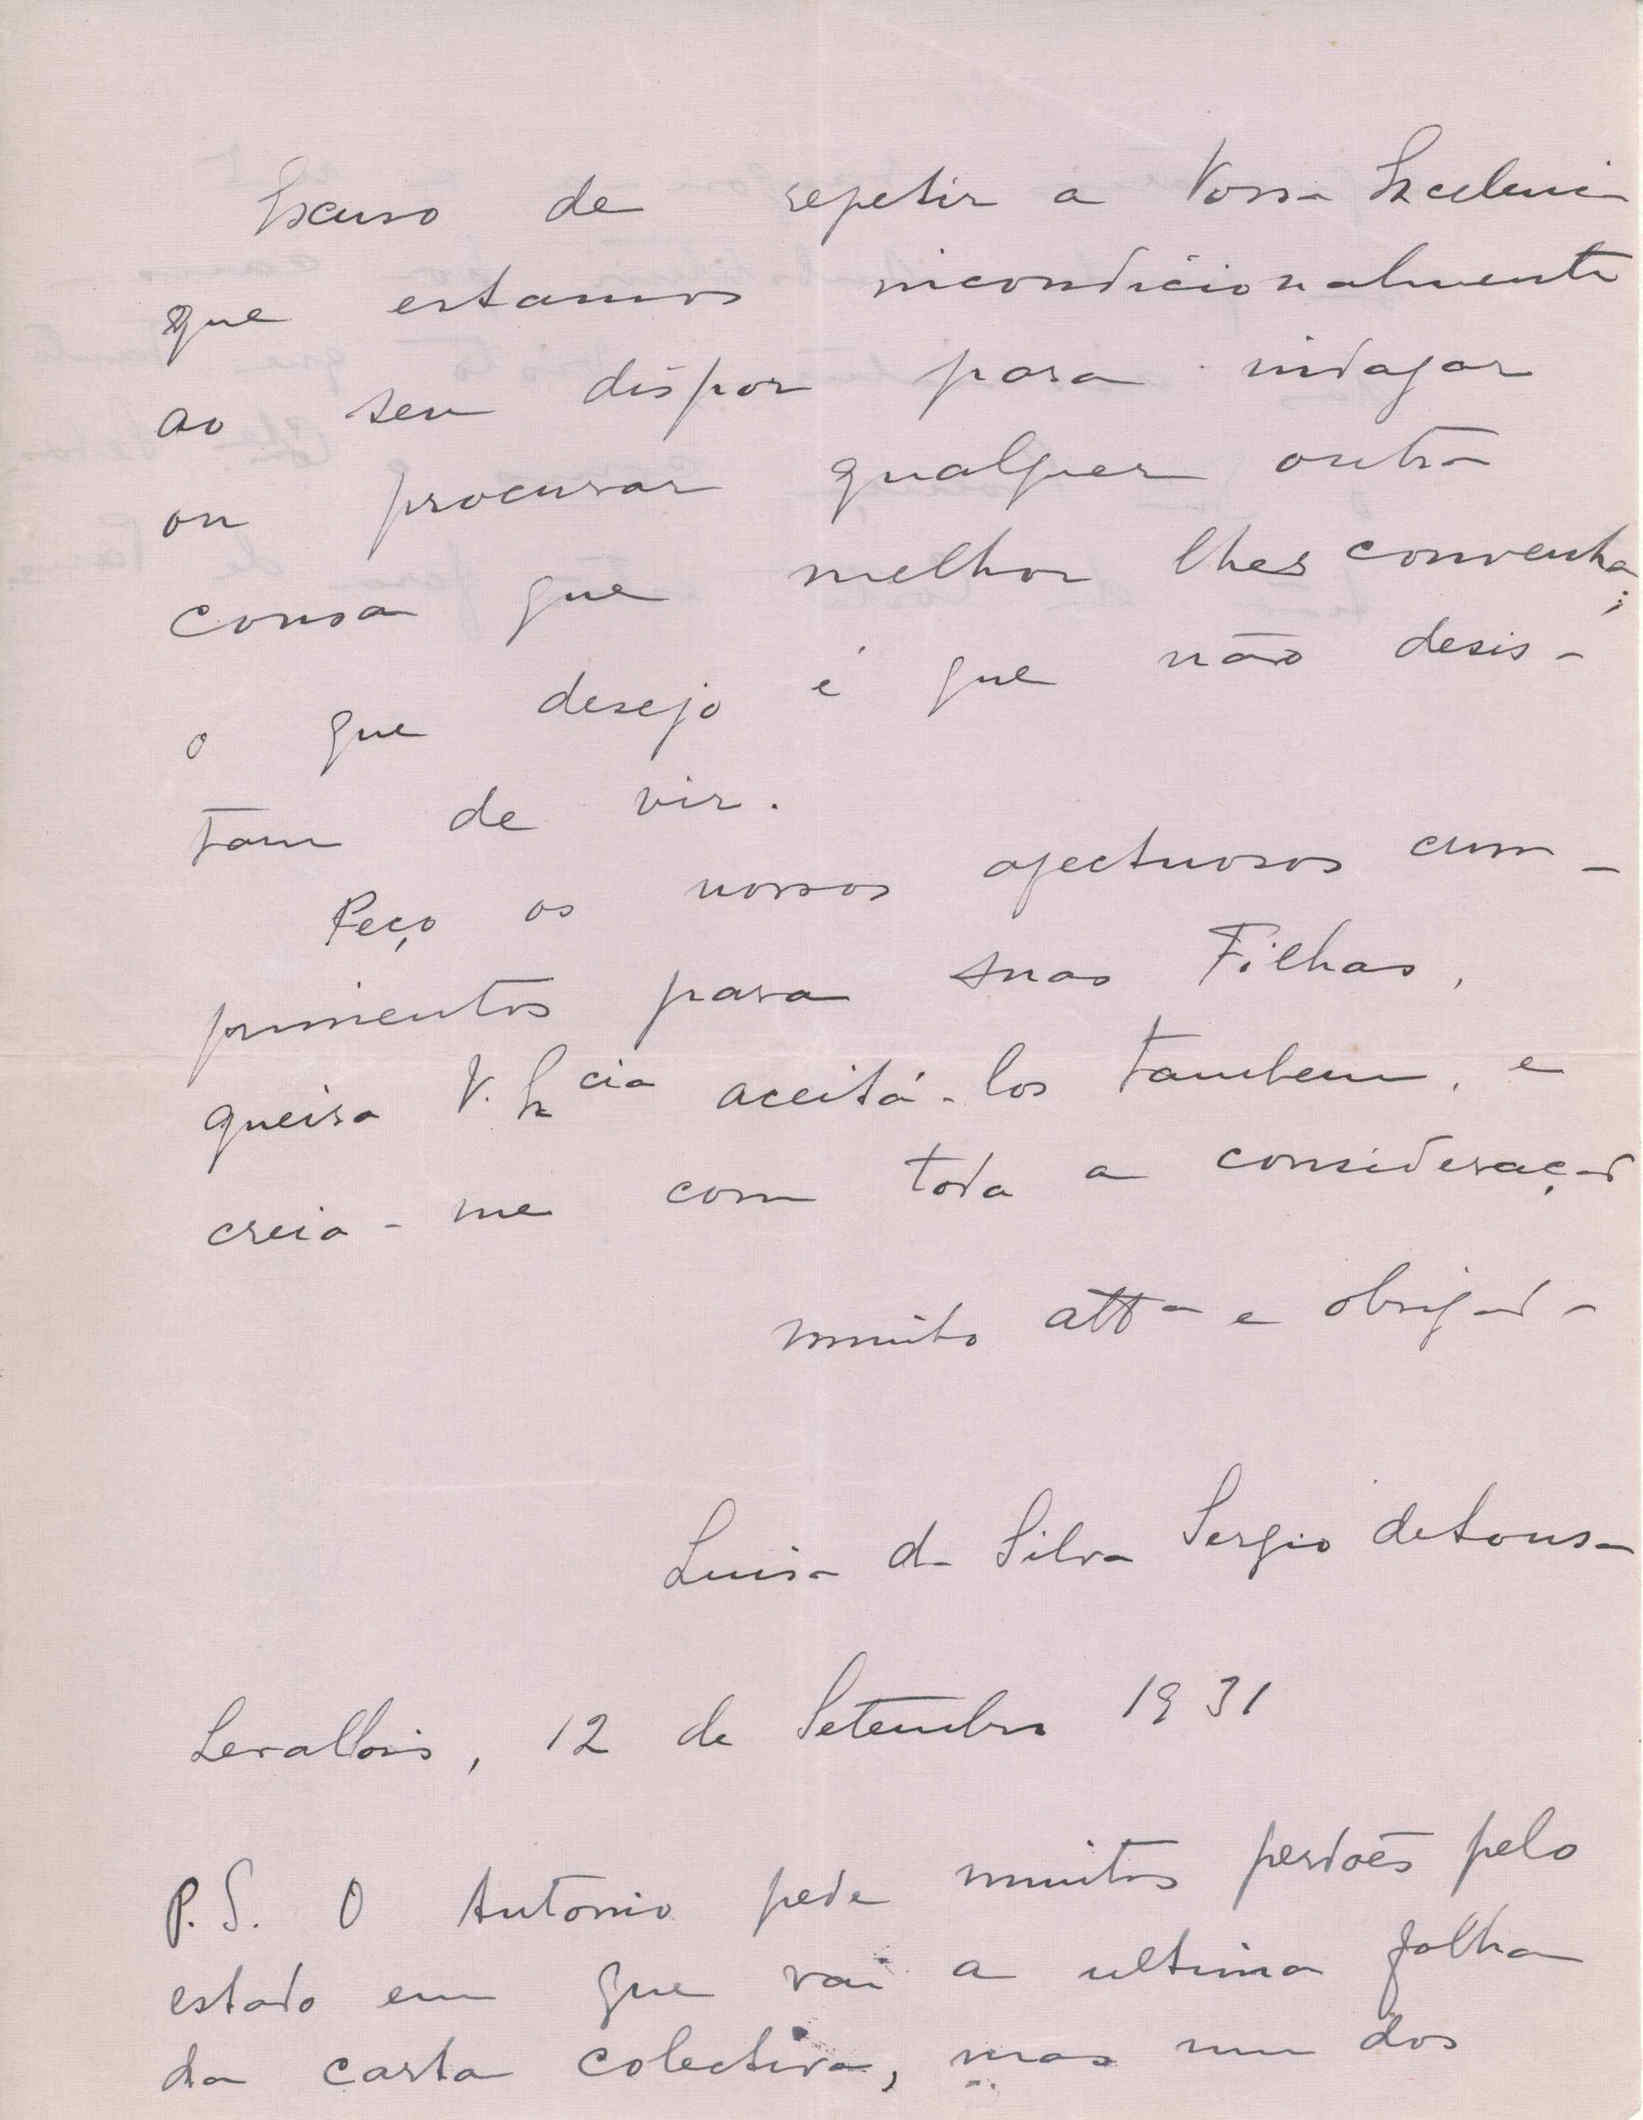 Escuso de repetir a Vossa Excelencia
que estamos incondicionalmente
ao seu dispor para indagar
ou procurar qualquer outra
cousa que melhor lhes convenha;
o que desejo é que não desis-
tam de vir.
Peço os nossos afectuosos cum-
primentos para suas Filhas,
queira V. Ex cia aceitá-los tambem, e
creia-me com toda a consideração
muito att a e obrigada
Luisa da Silva Sergio de Sousa
Levallois, 12 de Setembro 1931
P.S. O Antonio pede muitos perdões pelo
estado em que vai a ultima folha
da carta colectiva, mas um dos